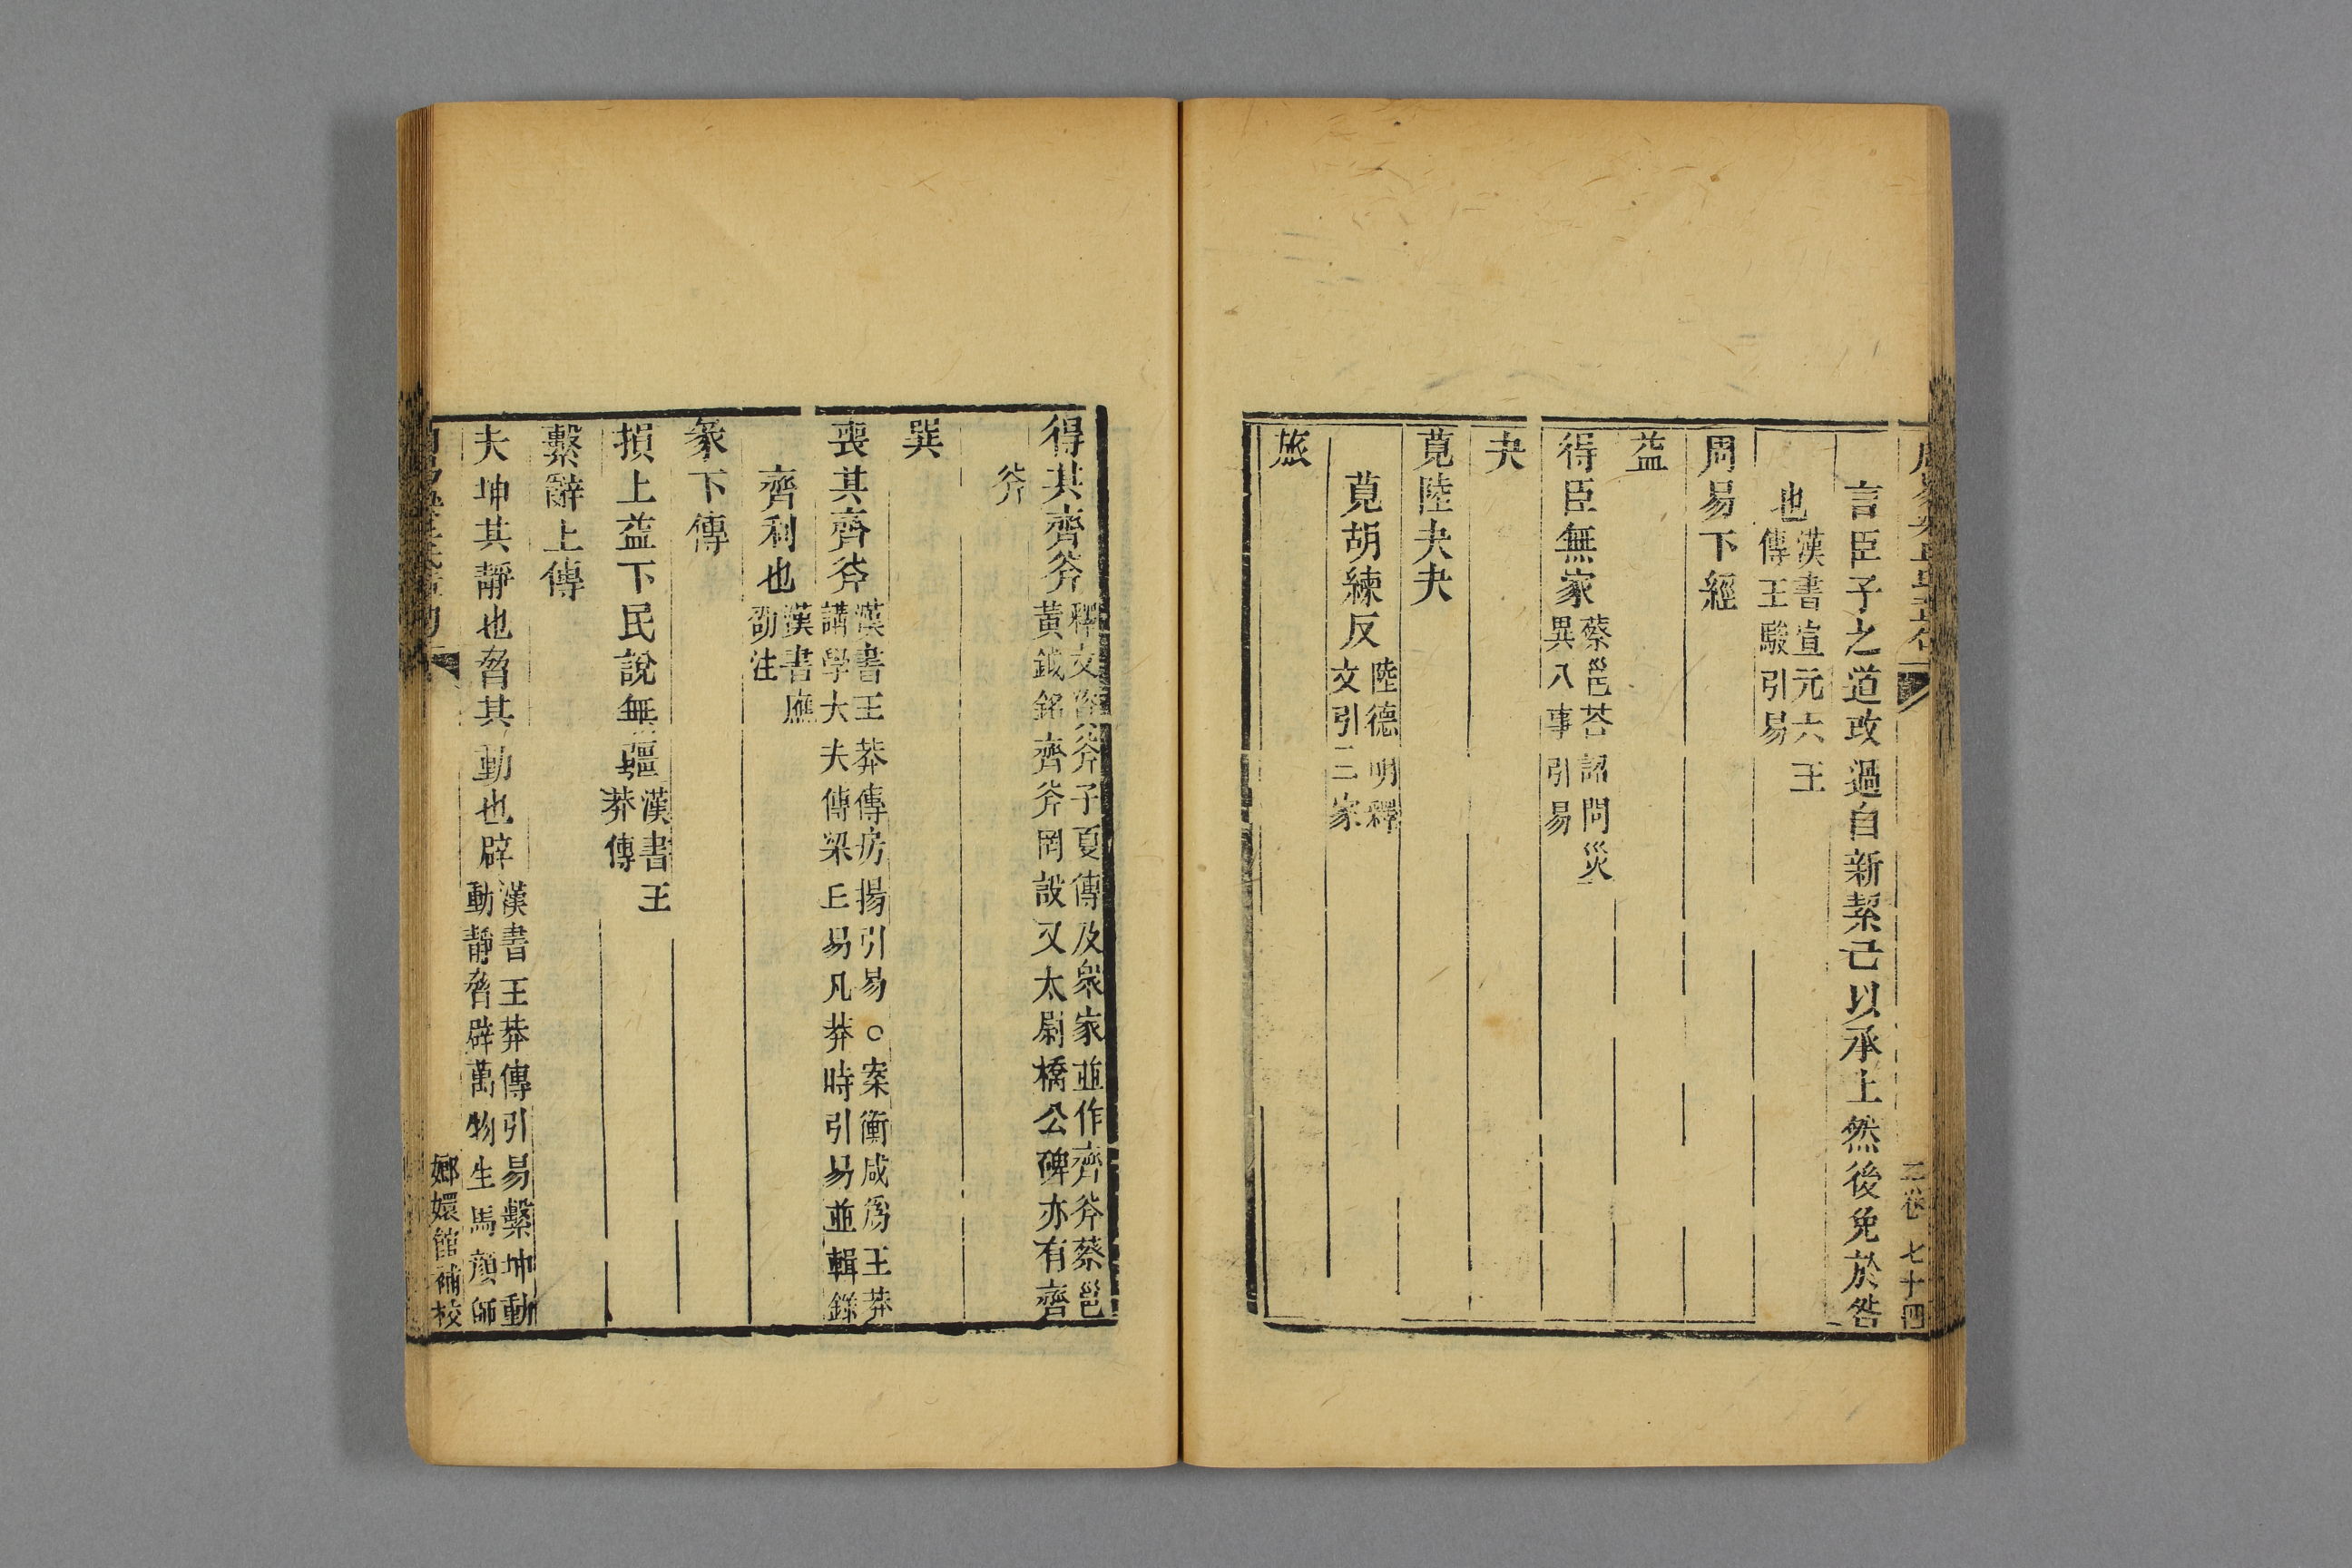 三卷 七十四
言臣子之道改過自新絜己以承上然後免於咎
也漢書宣元六王
傳王駿引易
周易下經
益
得臣無家蔡邕荅詔問災
異八事引易
夬
莧陸夬夬
莧胡練反陸德明釋
文引三家
旅
得其齊斧釋文資斧子夏傳及衆家並作齊斧蔡邕
黃鉞銘齊斧罔設又太尉橋公碑亦有齊
斧
巽
喪其齊斧漢書王莽傳房揚引易○案衡咸爲王莽
講學大夫傳梁丘易凡莽時引易並輯錄
齊利也漢書應
劭注
彖下傳
損上益下民說無疆漢書王
莽傳
繫辭上傳
夫坤其靜也翕其動也辟漢書王莽傳引易繫坤動
動靜翕辟萬物生焉顏師
嫏嬛館補校